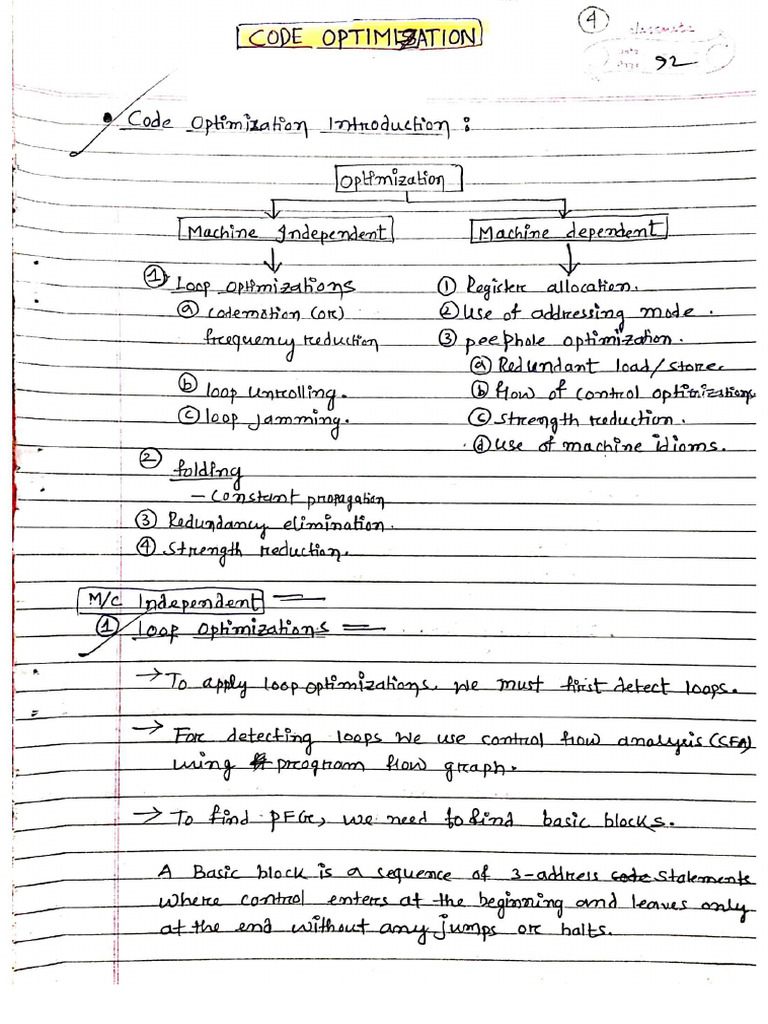 CODE OPTIMIZATION
4
classmate
Date
Page 92
• Code Optimization Introduction :
Optimization
Machine Independent
Machine dependent
① Loop optimizations
ⓐ codemotion (or)
frequency reduction
ⓑ loop unrolling.
ⓒ loop jamming.
② folding
– constant propagation
③ Redundancy elimination.
④ Strength reduction.
① Register allocation.
② Use of addressing mode.
③ peephole optimization.
ⓐ Redundant load/store.
ⓑ flow of control optimizations
ⓒ Strength reduction.
ⓓ Use of machine idioms.
M/C Independent
① Loop Optimizations
→ To apply loop optimizations, we must first detect loops.
→ For detecting loops we use control flow analysis (CFA)
using program flow graph.
→ To find PFG, we need to find basic blocks.
A Basic block is a sequence of 3-address code Statements
where control enters at the beginning and leaves only
at the end without any jumps or halts.